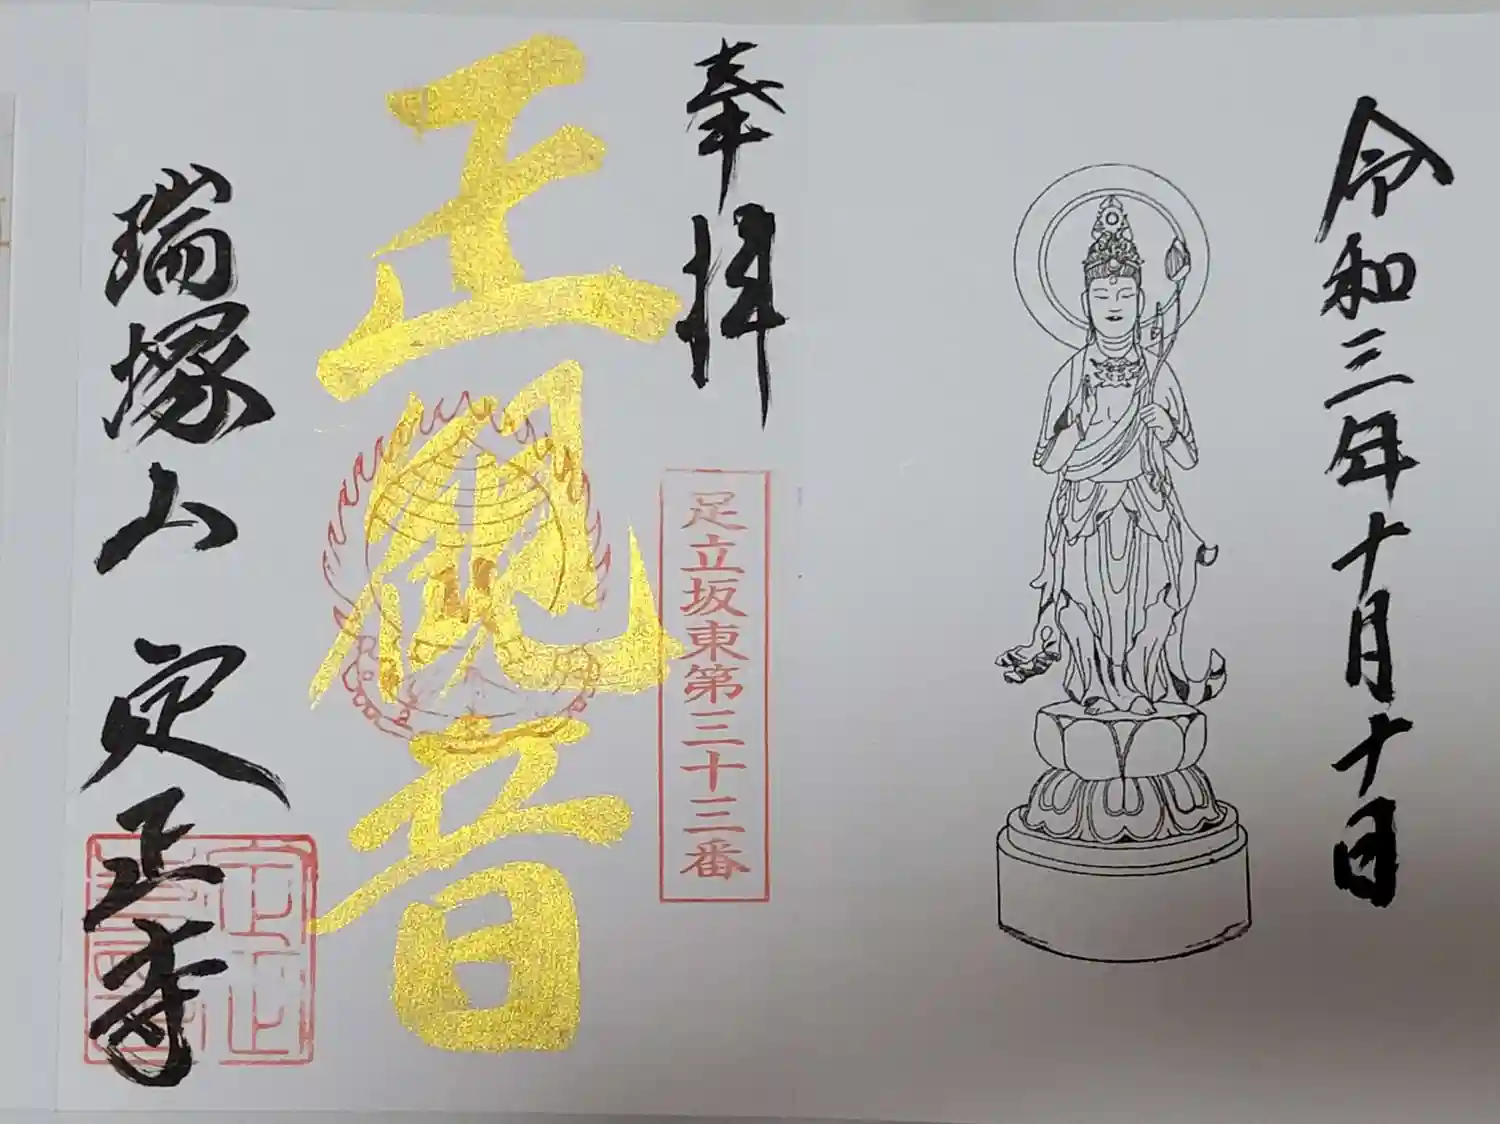 令和三年十月十日
奉拝
足立坂東第三十三番
正観音
瑞塚山 定正寺